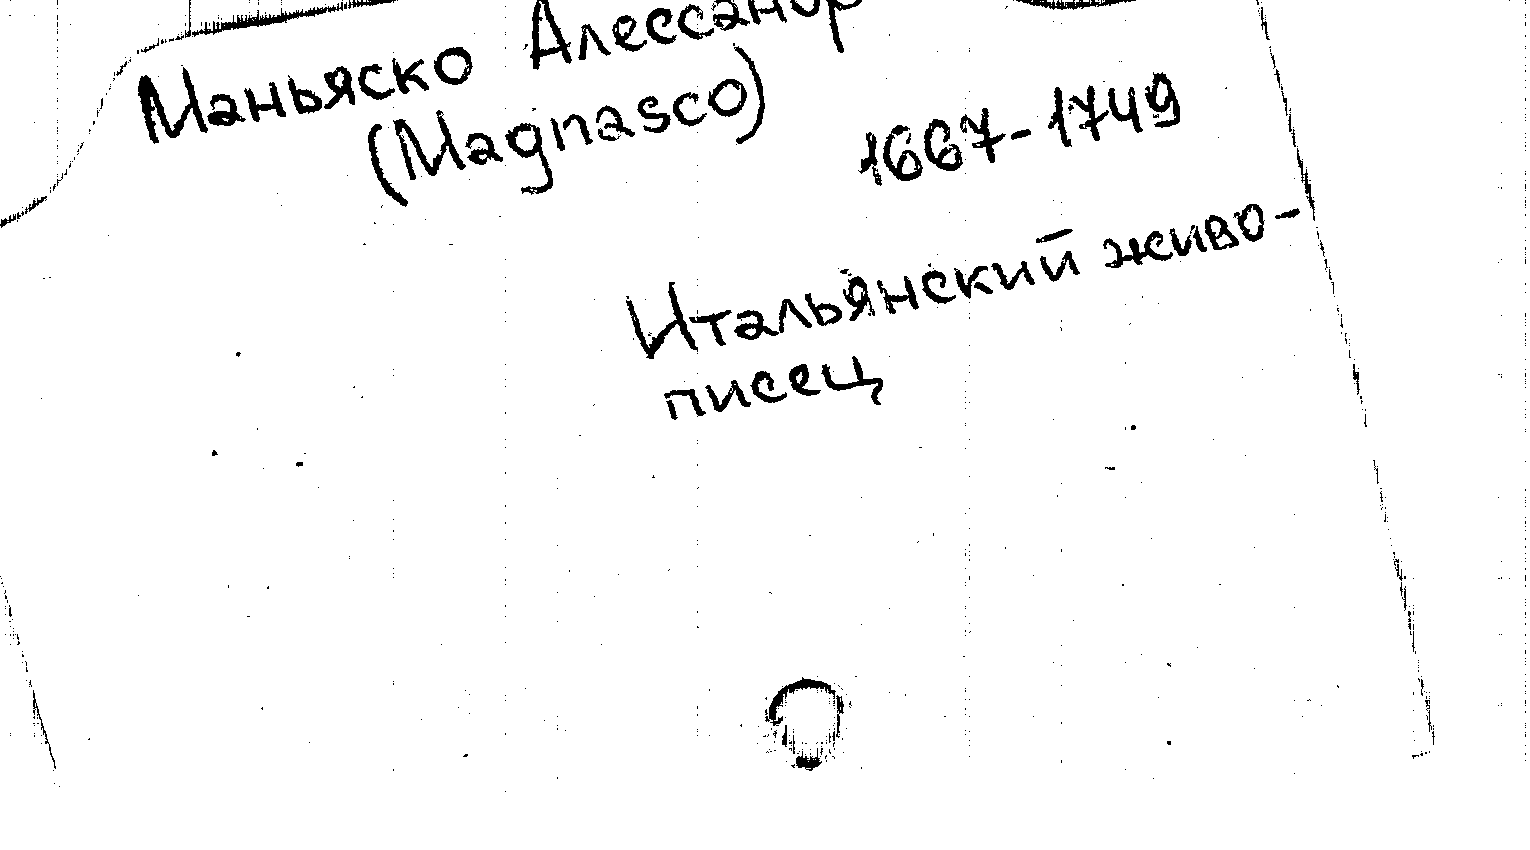 Маньяско Алессандр
(Magnasco)
1667-1749
Итальянский живо-
писец